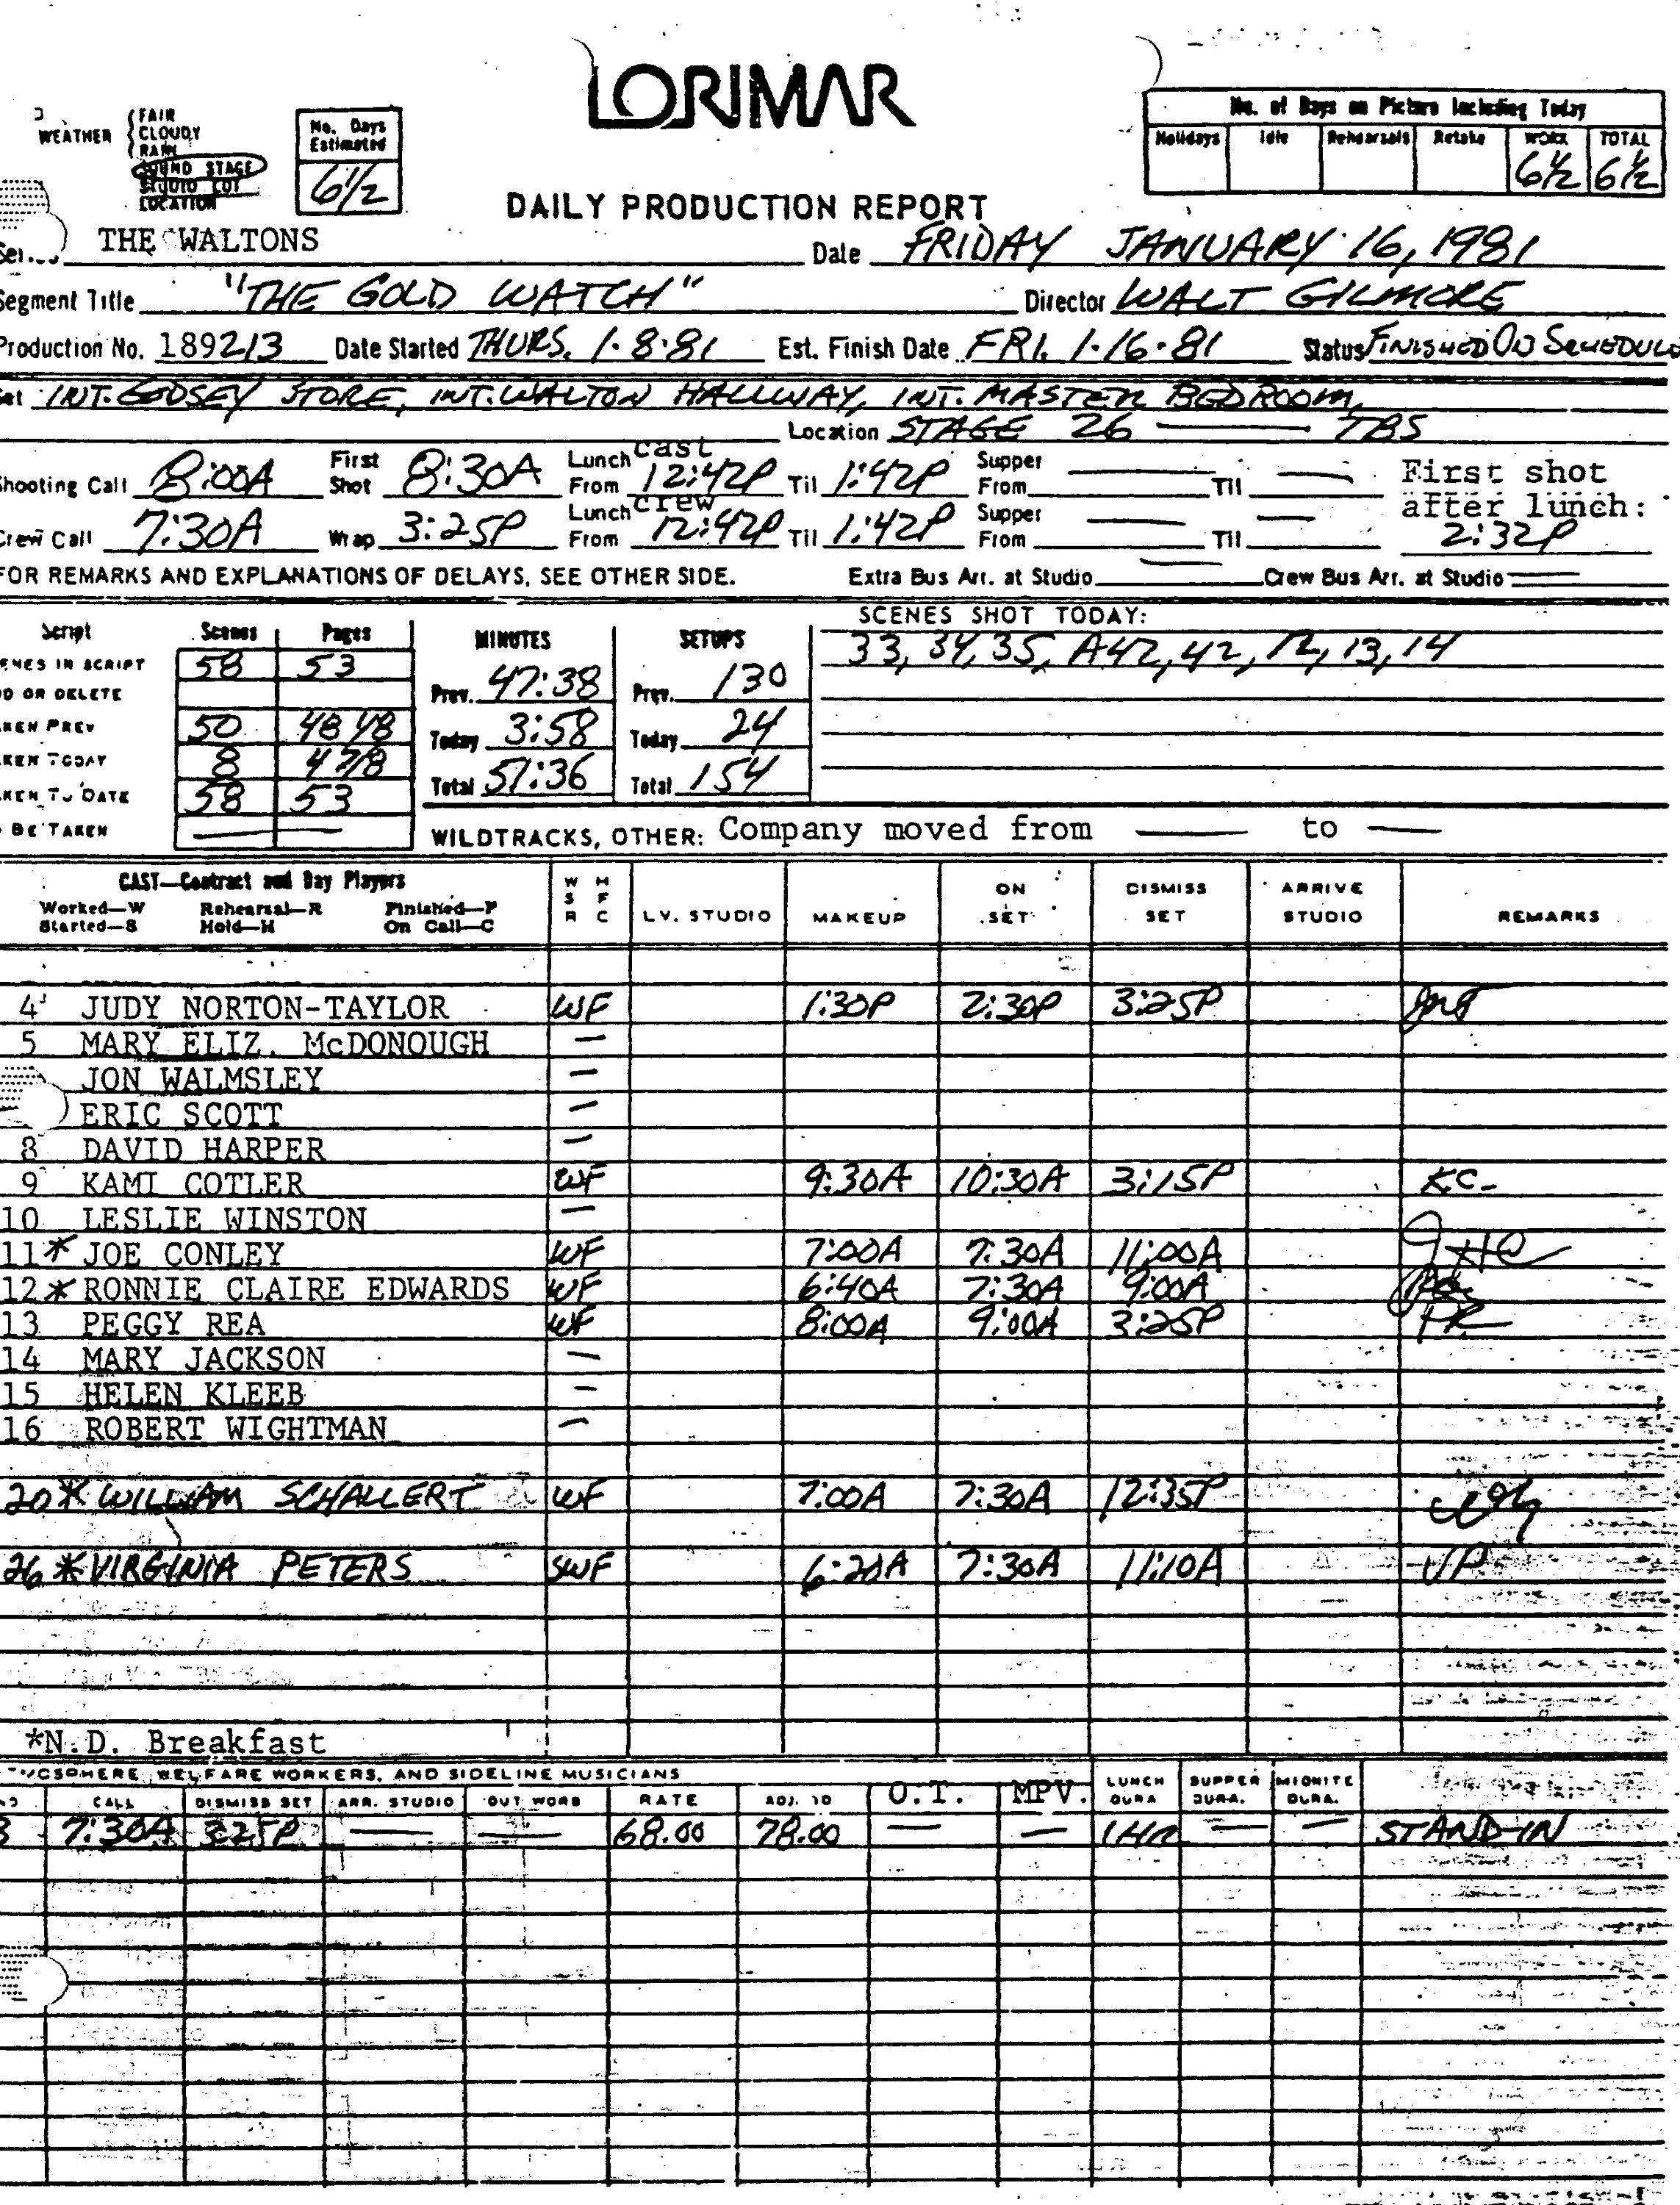 LORIMAR
WEATHER
FAIR
CLOUDY
RAIN
SOUND STAGE
STUDIO LOT
LOCATION
No. Days Estimated
6 1/2
No. of Days on Picture Including Today
Holidays Idle Rehearsals Retake WORK TOTAL
6 1/2 6 1/2
DAILY PRODUCTION REPORT
THE WALTONS Date FRIDAY JANUARY 16, 1981
Segment Title "THE GOLD WATCH" Director WALT GILMORE
Production No. 189213 Date Started THURS. 1·8·81 Est. Finish Date FRI. 1·16·81 Status FINISHED ON SCHEDULE
INT. GODSEY STORE, INT. WALTON HALLWAY, INT. MASTER BEDROOM,
Location STAGE 26 — TBS
Shooting Call 8:00A First Shot 8:30A Lunch cast From 12:42P Til 1:42P Supper From — Til — First shot after lunch:
Crew Call 7:30A Wrap 3:25P Lunch crew From 12:42P Til 1:42P Supper From — Til — 2:32P
FOR REMARKS AND EXPLANATIONS OF DELAYS, SEE OTHER SIDE. Extra Bus Arr. at Studio — Crew Bus Arr. at Studio —
SCENES SHOT TODAY:
33, 34, 35, A42, 42, 12, 13, 14
Script Scenes Pages MINUTES SETUPS
ENES IN SCRIPT 58 53 Prev. 47:38 Prev. 130
D OR DELETE
KEN PREV 50 48 1/8 Today 3:58 Today 24
KEN TODAY 8 4 7/8 Total 51:36 Total 154
KEN TO DATE 58 53
BE TAKEN — —
WILDTRACKS, OTHER: Company moved from — to —
CAST—Contract and Day Players
Worked—W Rehearsal—R Finished—F
Started—S Hold—H On Call—C
W H
S F
R C
LV. STUDIO MAKEUP ON SET DISMISS SET ARRIVE STUDIO REMARKS
4 JUDY NORTON-TAYLOR WF 1:30P 2:30P 3:25P
5 MARY ELIZ. McDONOUGH —
JON WALMSLEY —
ERIC SCOTT —
8 DAVID HARPER —
9 KAMI COTLER WF 9:30A 10:30A 3:15P KC
10 LESLIE WINSTON —
11* JOE CONLEY WF 7:00A 7:30A 11:00A
12* RONNIE CLAIRE EDWARDS WF 6:40A 7:30A 9:00A
13 PEGGY REA WF 8:00A 9:00A 3:25P PR
14 MARY JACKSON —
15 HELEN KLEEB —
16 ROBERT WIGHTMAN —
20* WILLIAM SCHALLERT WF 7:00A 7:30A 12:35P
26* VIRGINIA PETERS SWF 6:20A 7:30A 11:10A VP
*N.D. Breakfast
WELFARE WORKERS, AND SIDELINE MUSICIANS
CALL DISMISS SET ARR. STUDIO OUT WORB RATE ADJ. TO O.T. MPV. LUNCH DURA SUPPER DURA. MIDNITE DURA.
7:30A 3:25P — — 68.00 78.00 — — 1HR — — STAND-IN